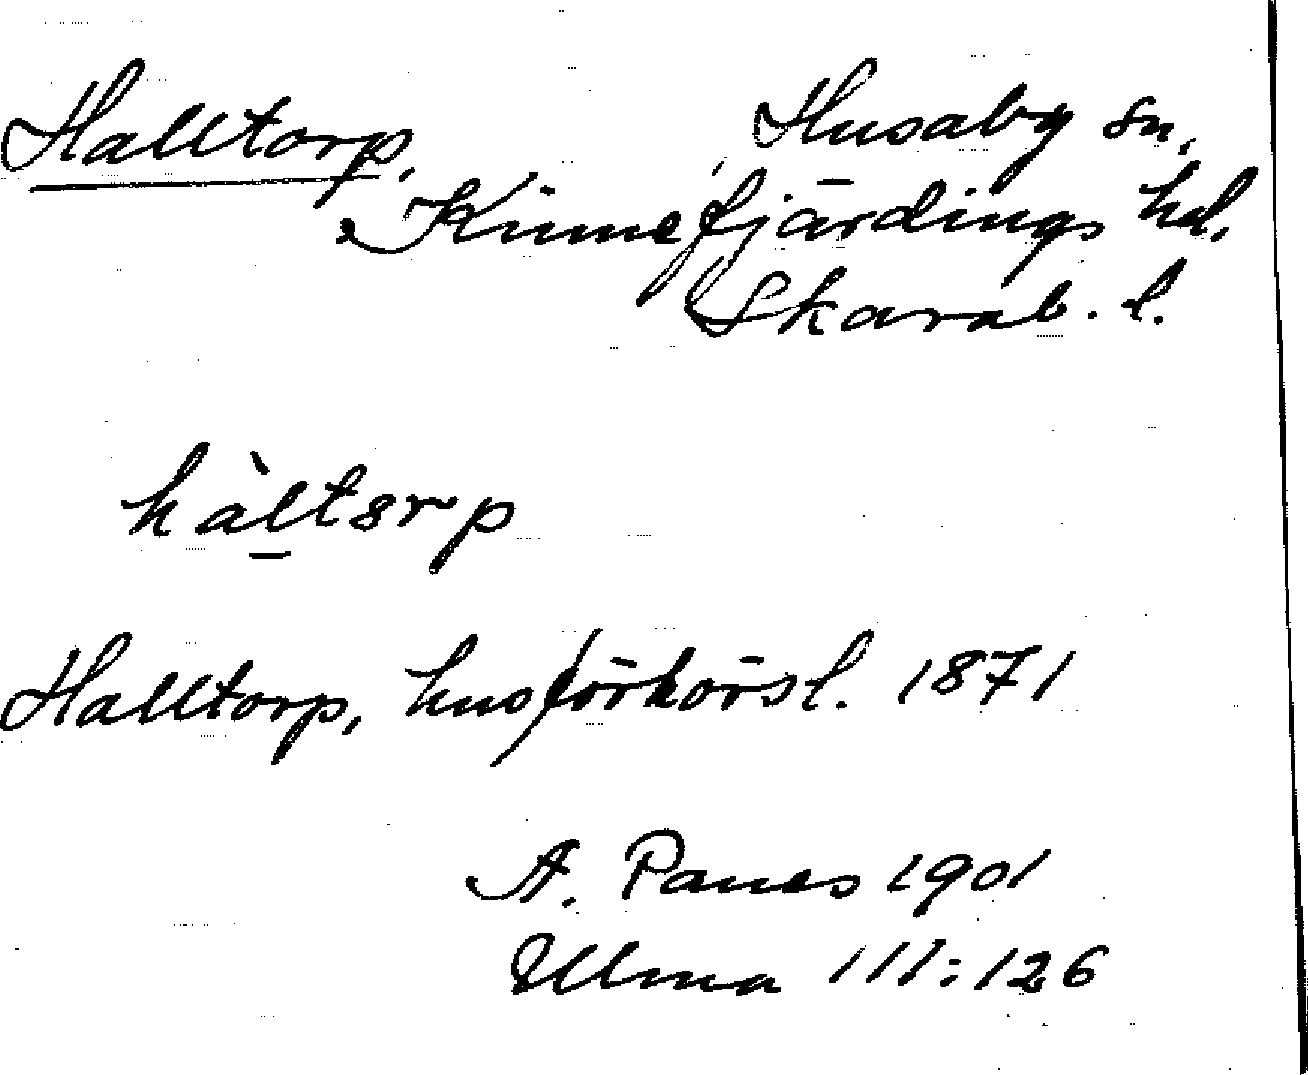 Halltorp, Husaby sn,
Kinnefjärdings hd,
Skarab. l.
hàltsrp
Halltorp, husförhörsl. 1871
A. Panes 1901
Ulma 111:126